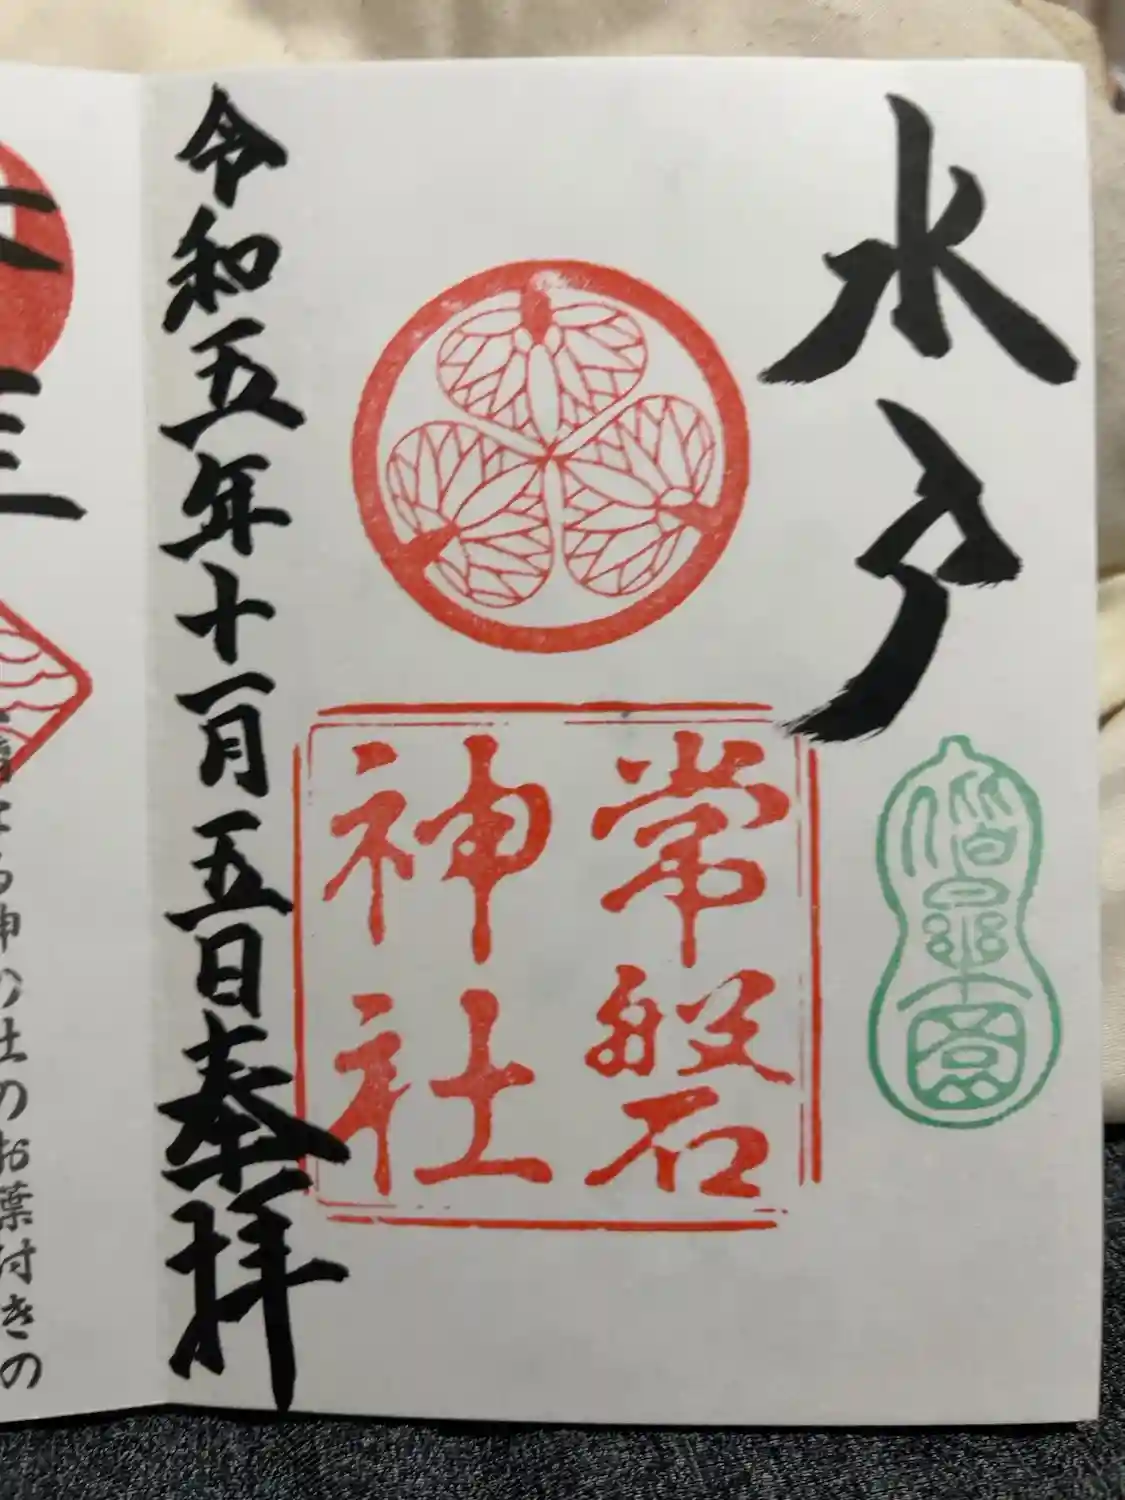 水戸
偕楽園
常磐
神社
令和五年十一月五日奉拝
三
の神の社のお葉付きの